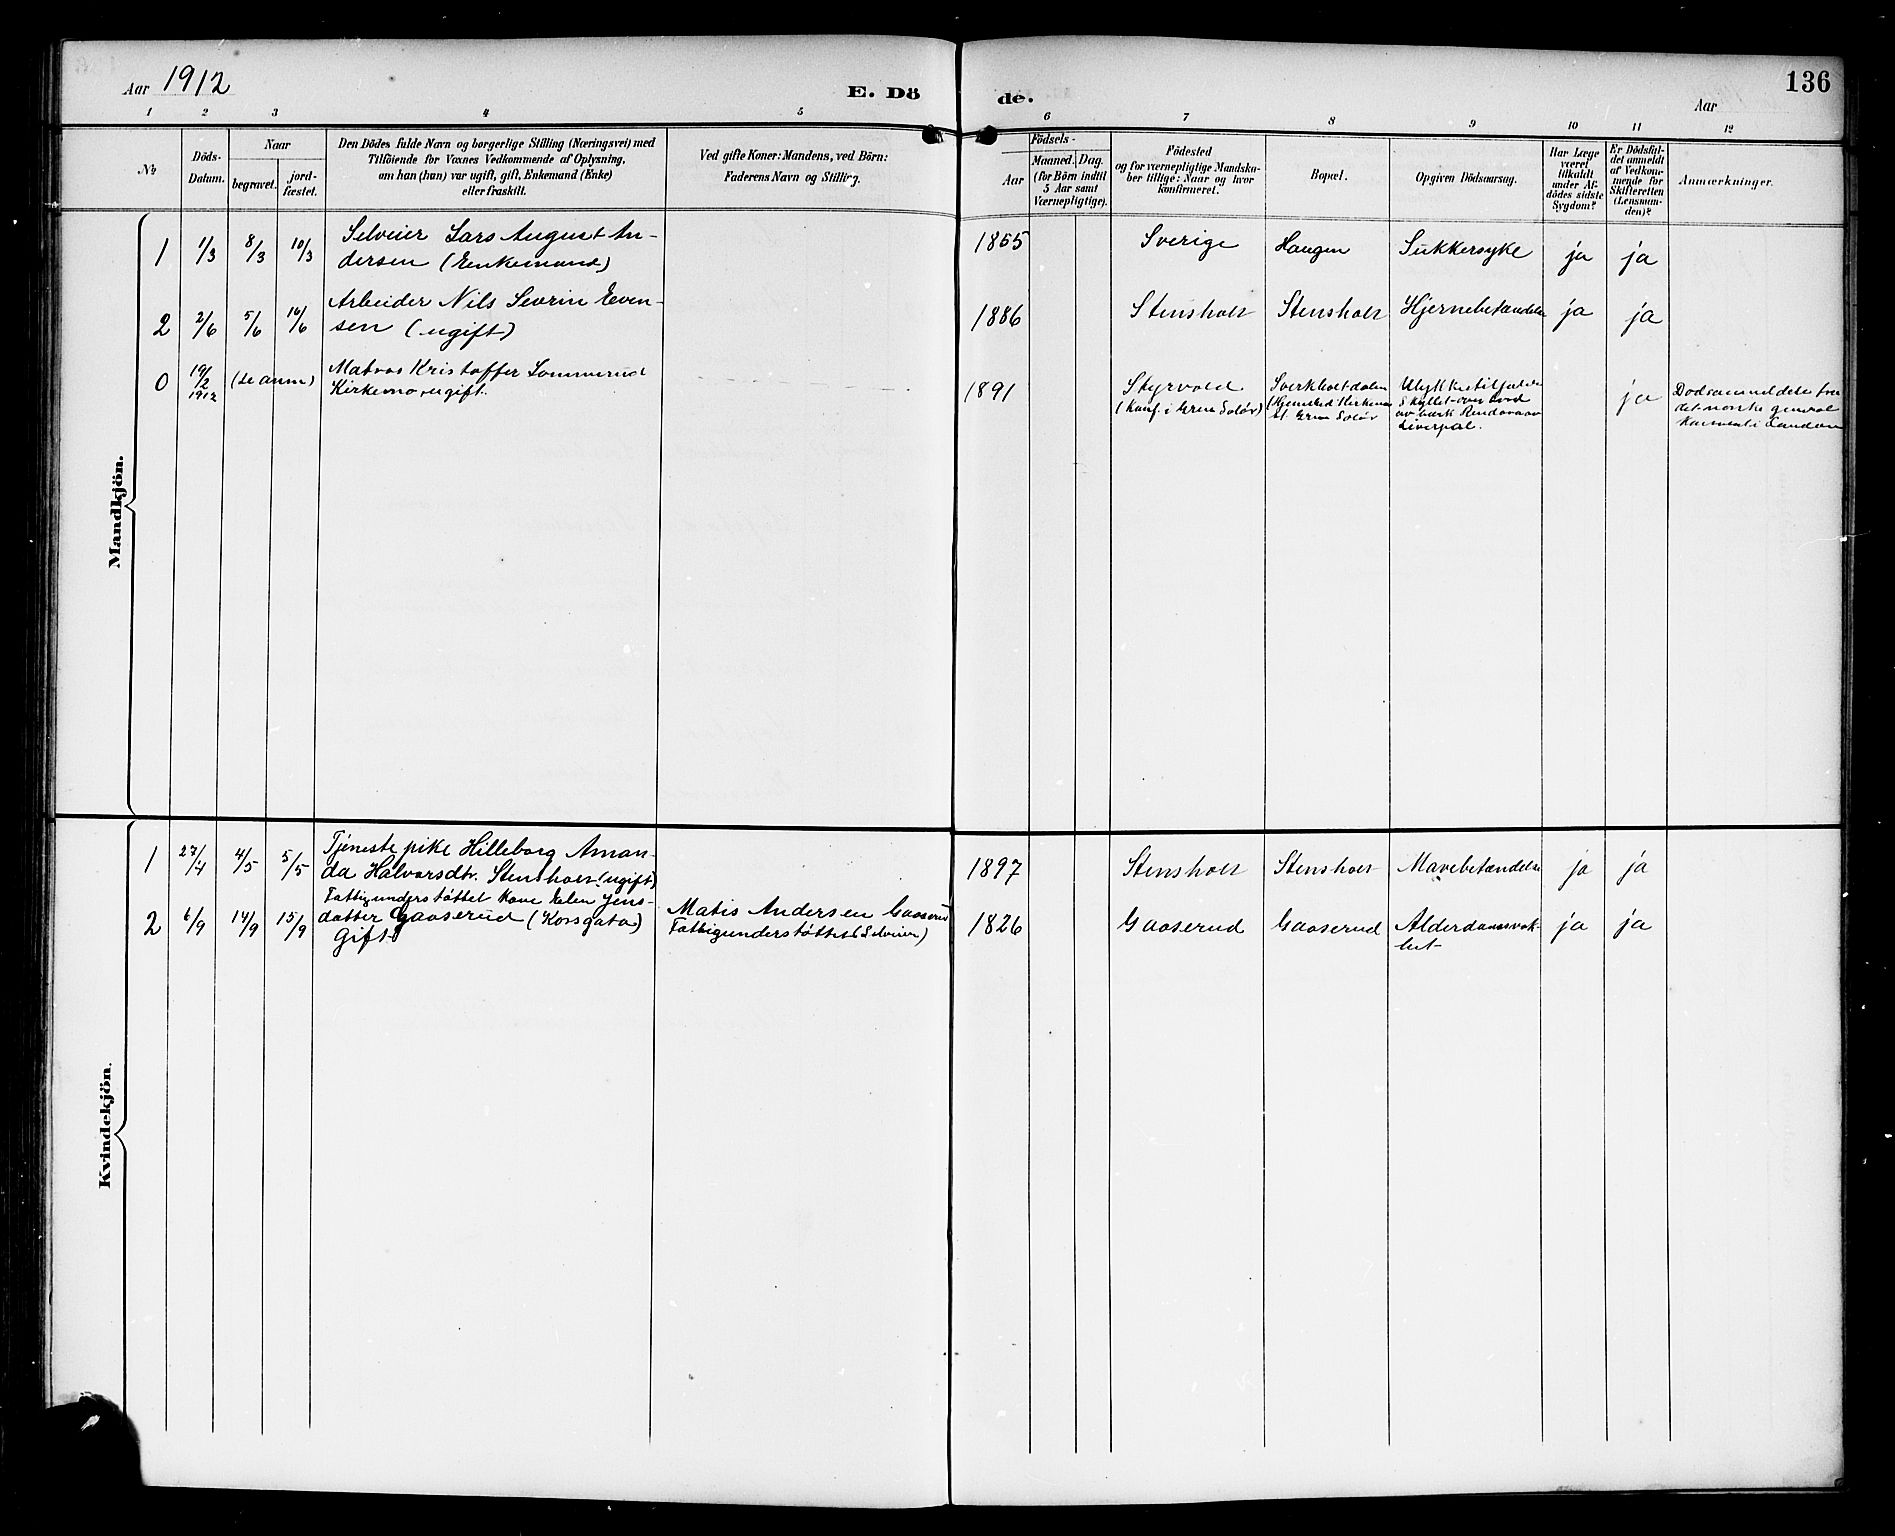 Aar 1912
E. Döde.
136
Aar
1 2 3 4 5 6 7 8 9 10 11 12
No
Döds-
Datum.
Naar
begravet.
jord-
fæstet.
Den Dödes fulde Navn og borgerlige Stilling (Næringsvei) med
Tilföiende for Voxnes Vedkommende af Oplysning,
om han (hun) var ugift, gift, Enkemand (Enke)
eller fraskilt.
Ved gifte Koner: Mandens, ved Börn:
Faderens Navn og Stilling.
Födsels-
Aar
Maaned. Dag.
(for Börn indtil
5 Aar samt
Værnepligtige).
Födested
og for værnepligtige Mandska-
ber tillige: Naar og hvor
konfirmeret.
Bopæl.
Opgiven Dödsaarsag.
Har Læge
været
tilkaldt
under Af-
dödes sidste
Sygdom?
Er Dödsfal-
det anmeldt
af Vedkom-
mende for
Skifteretten
(Lensman-
den)?
Anmærkninger.
Mandkjön.
1 1/3 8/3 10/3
Selveier Lars August An-
dersen (Enkemand)
1855 Sverige Haugen Sukkersyke ja ja
2 2/6 5/6 16/6
Arbeider Nils Sevrin Even-
sen (ugift)
1886 Stensholt Stensholt Hjernebetændelse ja ja
0 19/2 1912 (se anm)
Matvas Kristoffer Sommerud
Kirkemo, ugift.
1891
Skyrvold
(Konf. i Grue Solör)
Sverkholtdalen
(Hjemsted Kirkemo
st Grue Solör
Ulykkestilfælde
Skyllet over bord
av bark
Liverpol.
ja
Dødsanmeldelse fra
det norske general
konsulat i London
Kvindekjön.
1 27/4 4/5 5/5
Tjenestepike Hilleborg Aman-
da Halvorsdtr. Stensholt (ugift)
1897 Stensholt Stensholt Mavebetændelse ja ja
2 6/9 14/9 15/9
Fattigunderstøttet Kone Kelen Jens-
datter Gaaserud (Korsgata)
Gift
Matis Andersen Gaaserud
Fattigunderstøttet (Selveier)
1826 Gaaserud Gaaserud Alderdomssvak-
het ja ja